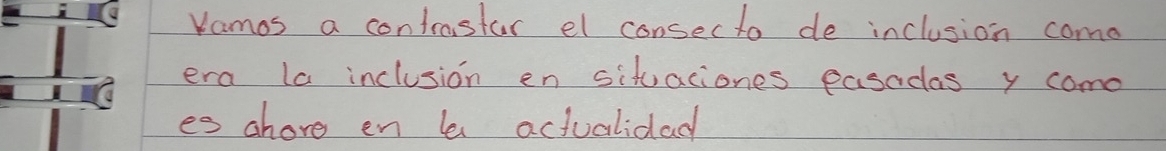 Vamos a contrastar el consecto de inclusión como
era la inclusión en situaciones pasadas y como
es ahora en la actualidad